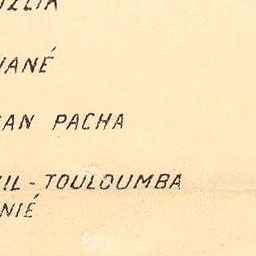 UZLIK
VANÉ
CAN PACHA
IL-TOULOUMBA
NIÉ